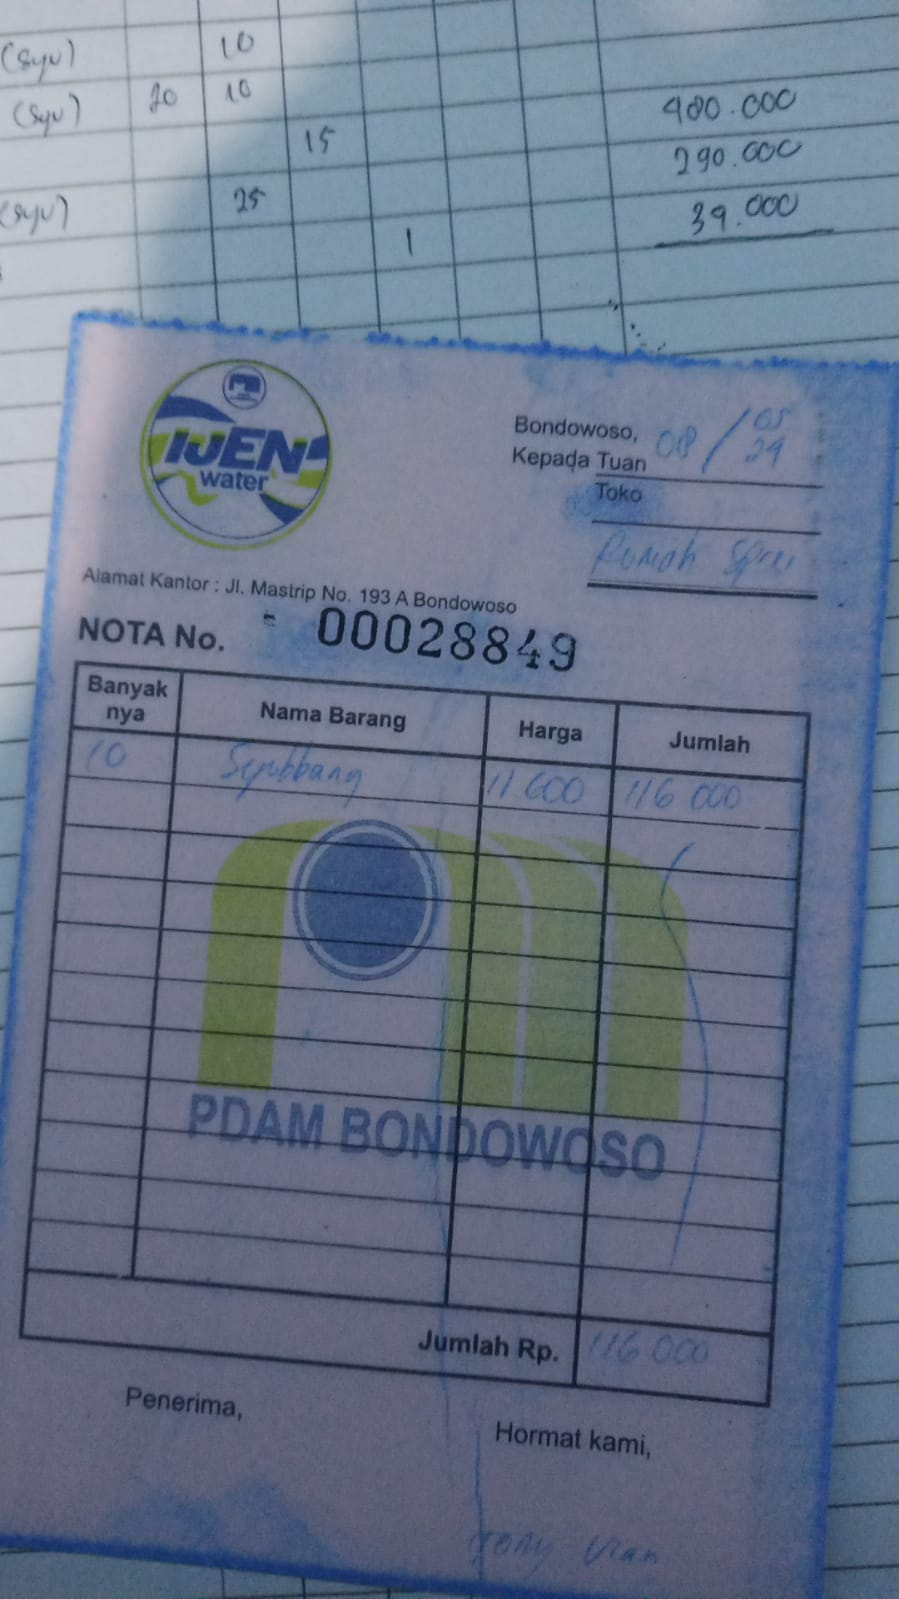 (syu) 10
(syu) 20 10 480.000
15 290.000
(syu) 25 39.000
1
IJEN
water
Bondowoso, 08/05
24
Kepada Tuan
Toko
Rumah
Alamat Kantor : Jl. Mastrip No. 193 A Bondowoso
NOTA No. 00028849
Banyak
nya Nama Barang Harga Jumlah
10 11 600 116 000
PDAM BONDOWOSO
Jumlah Rp. 116 000
Penerima,
Hormat kami,